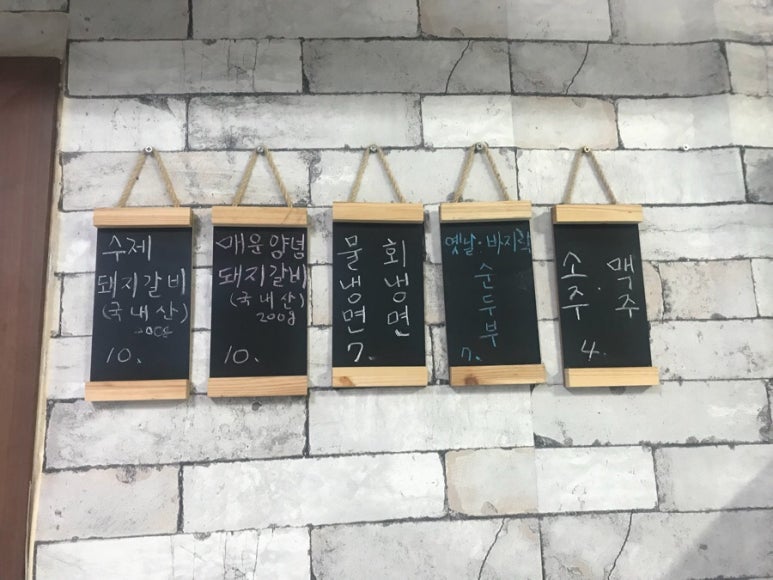 수제
돼지갈비
(국내산)
10.
매운양념
돼지갈비
(국내산)
200g
10.
물냉면
회냉면
7.
옛날·바지락
순두부
7.
소주·맥주
4.